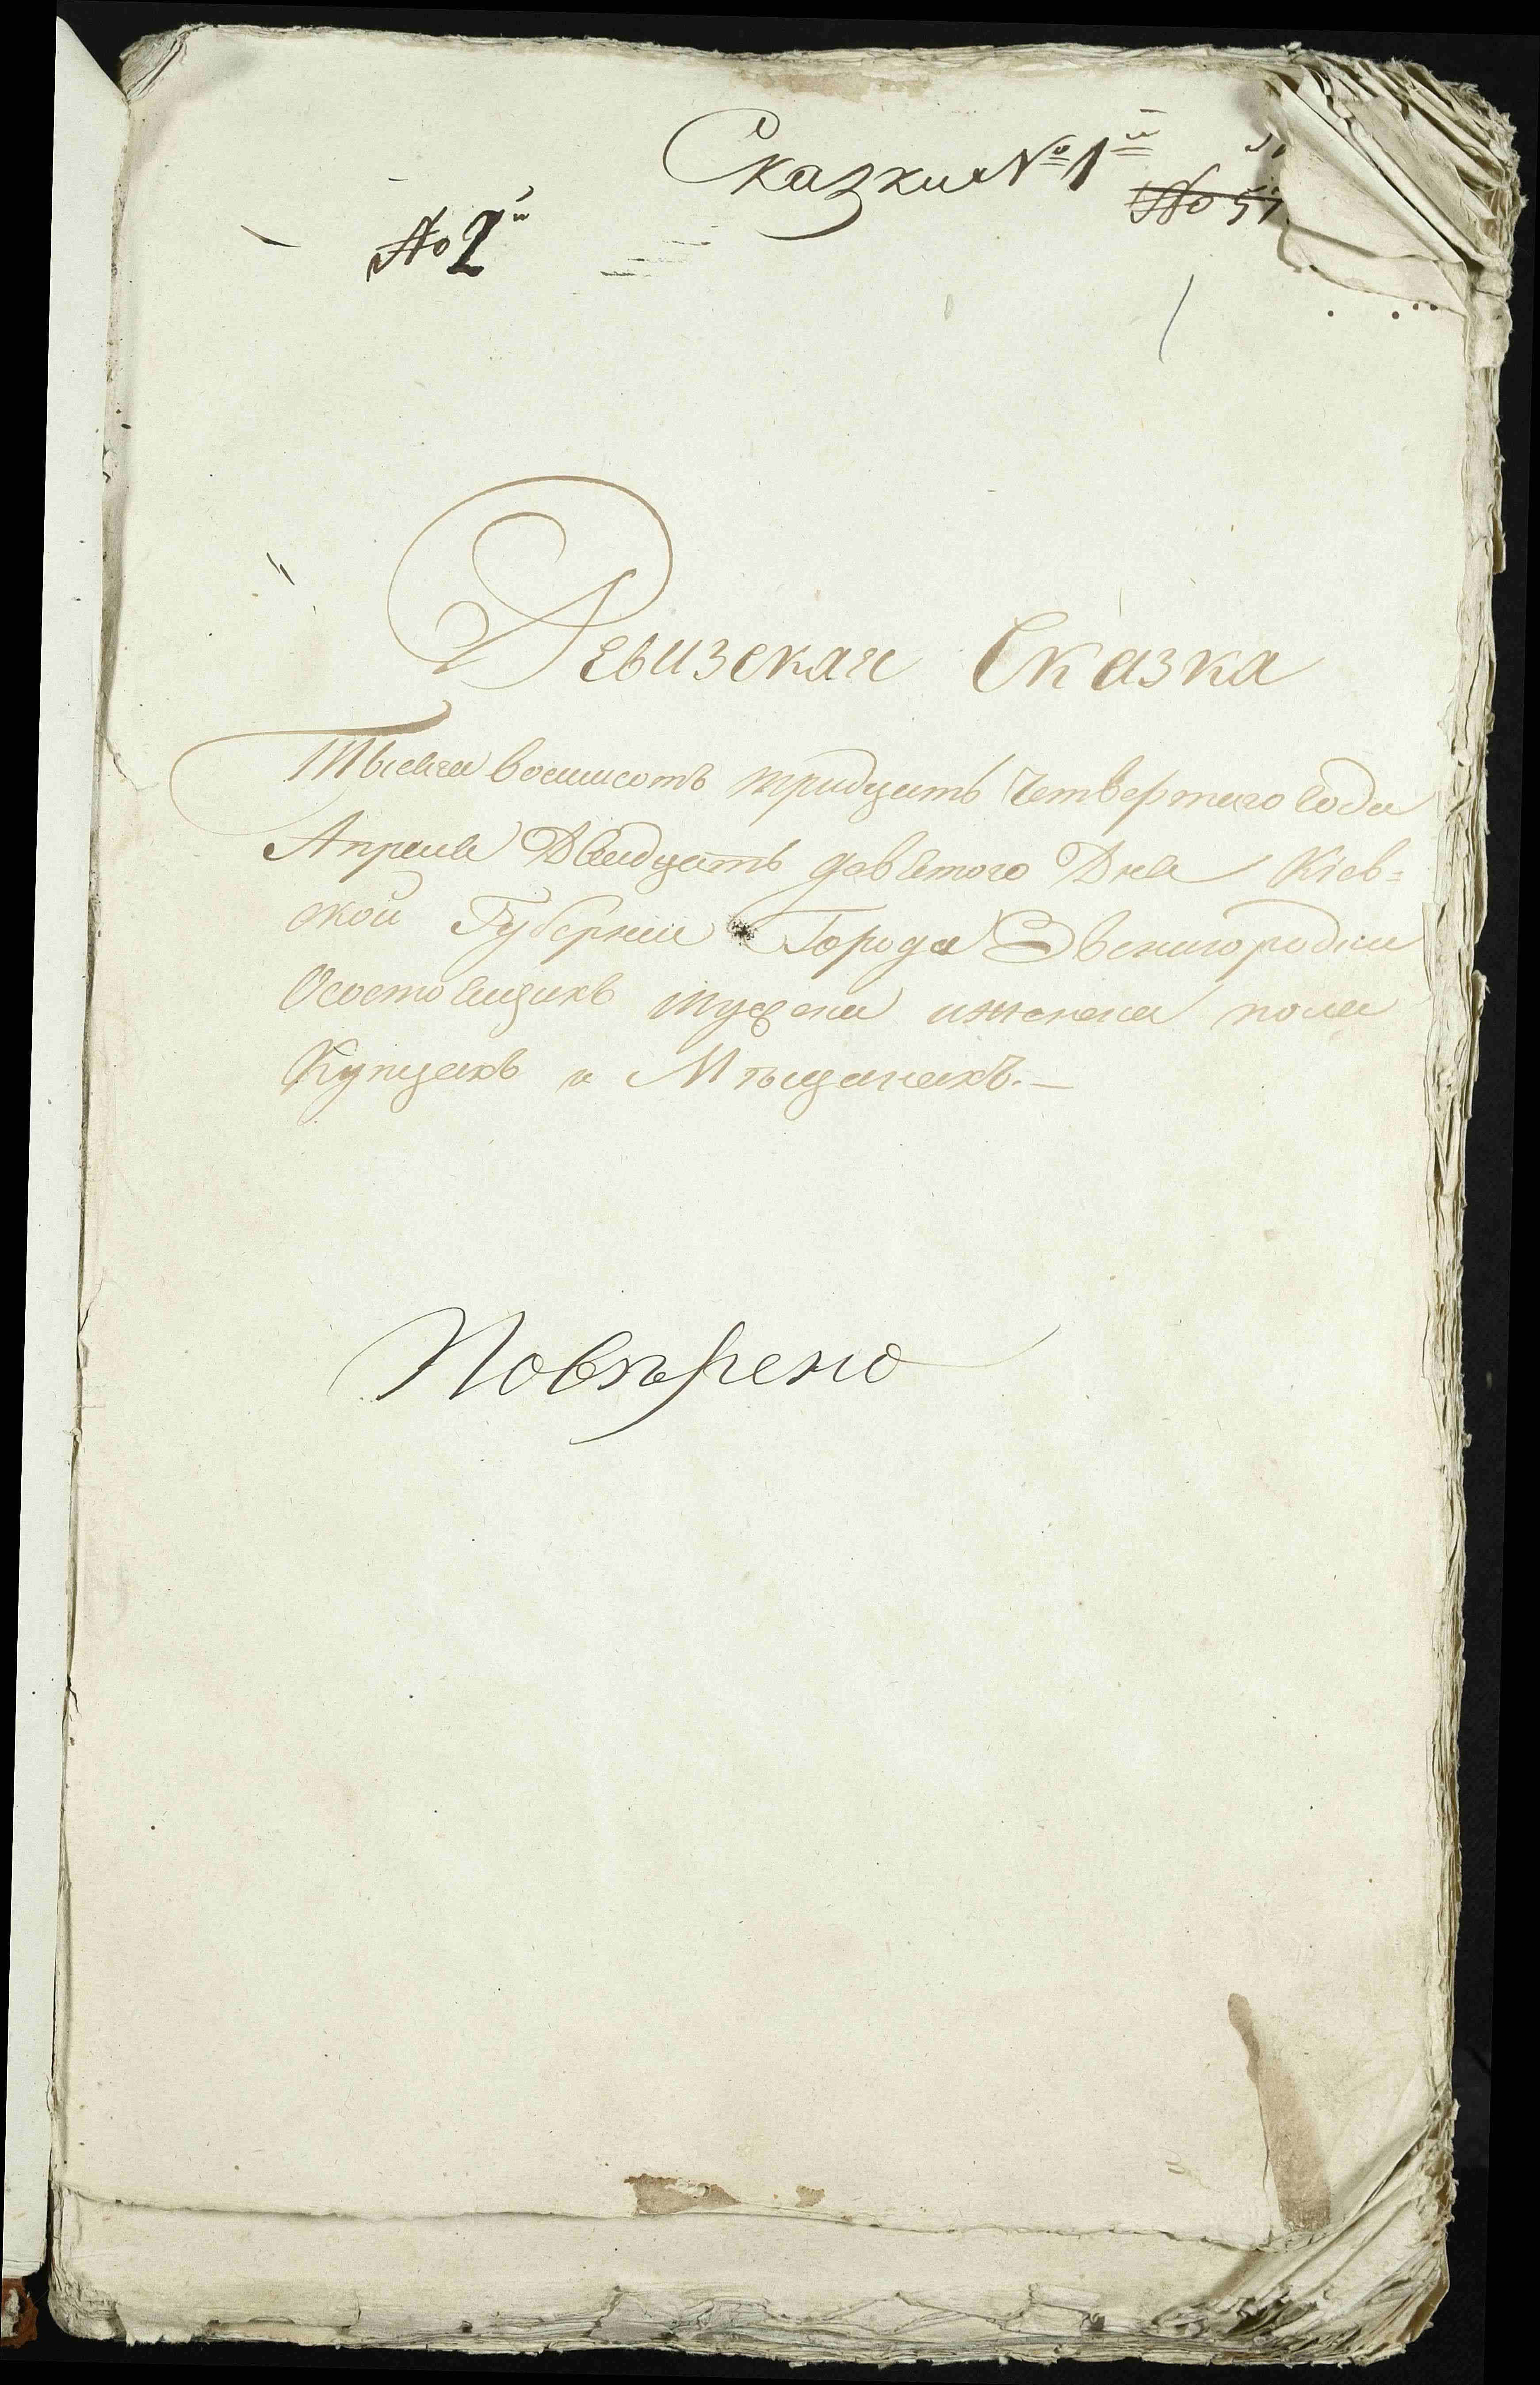 Сказки № 1й
№ 51
№ 2й
Ревизская Сказка
Тысяча восимсотъ тридцать Четвертаго года
Апреля Двадцать девятого Дня Кіев=
ской Губернии Города Звенигородки
Осостоящихъ мужена ижпена пола
Купцахъ и Мѣщанахъ.—
Повѣрено